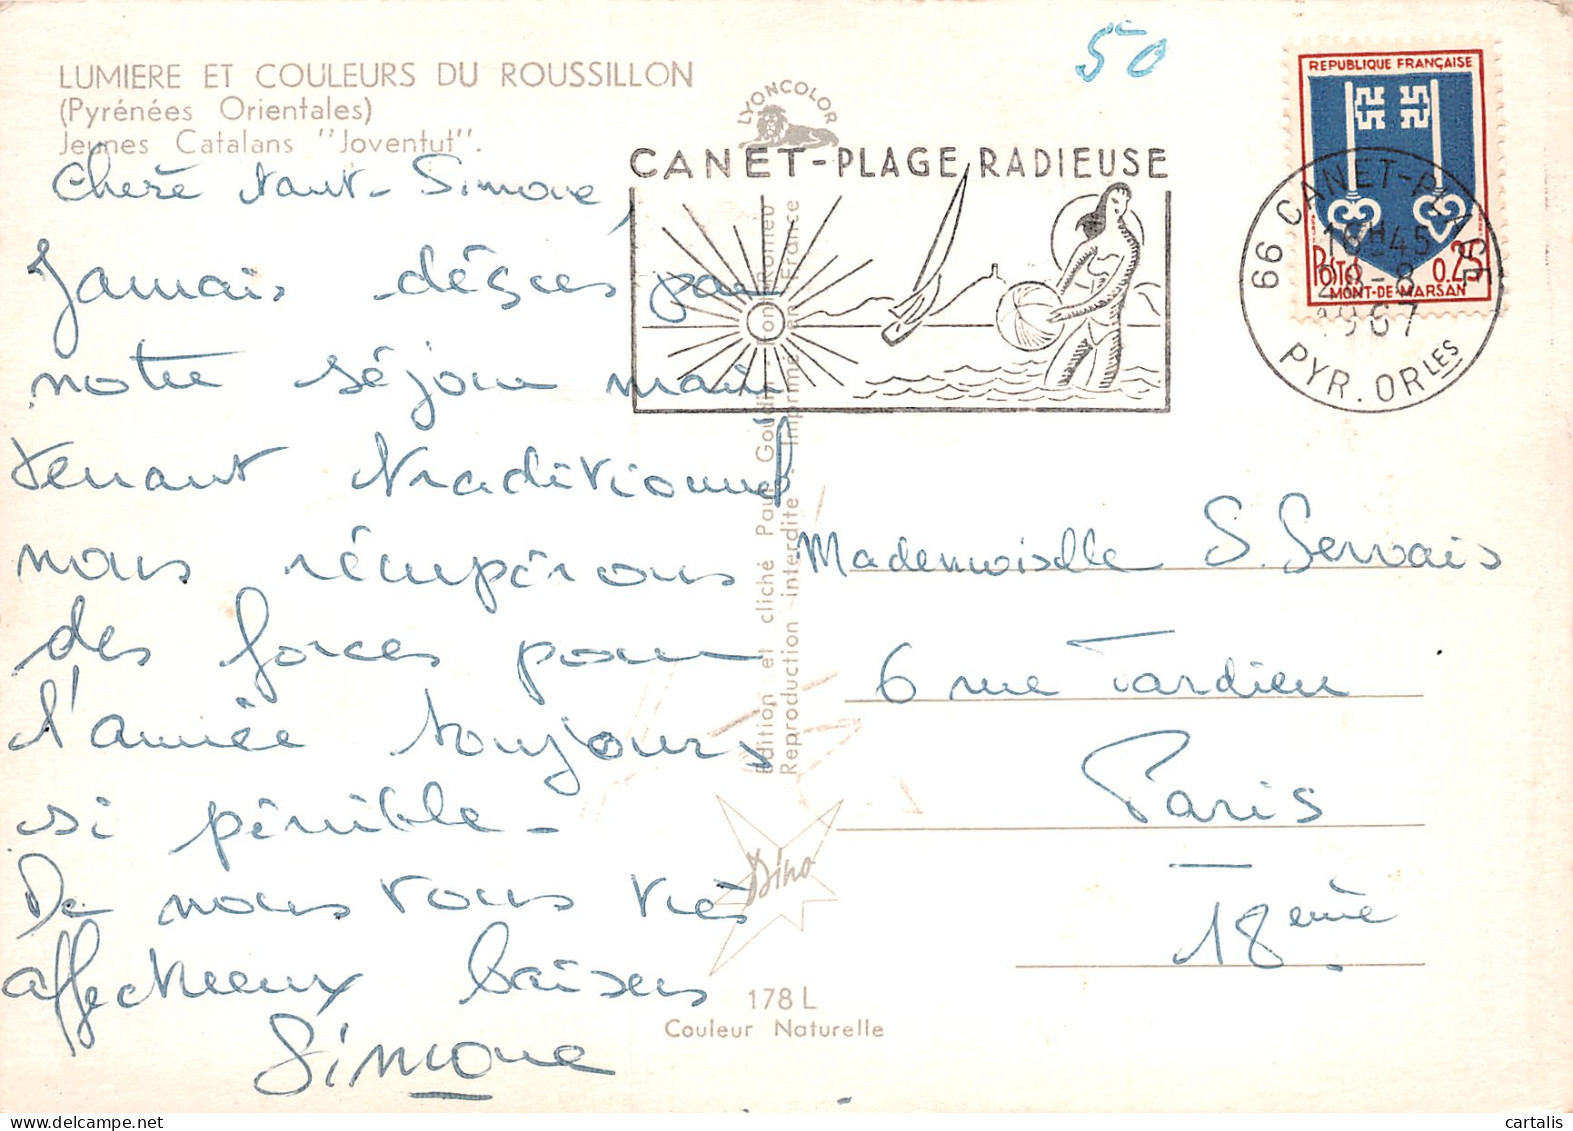 LUMIERE ET COULEURS DU ROUSSILLON
(Pyrénées Orientales)
Jeunes Catalans "Joventut".
Cheré tant-Simone,
Jamais déçues par
notre séjour main
tenant traditionnel
nous récupérons
des forces pour
l'année toujours
si pénible -
De nous vous très
affectueux baisers
Simone
50
LYONCOLOR
CANET-PLAGE RADIEUSE
REPUBLIQUE FRANÇAISE
POSTES 0.25
MONT-DE-MARSAN
66 CANET-PLAGE
18H45
28-8
1967
PYR. ORLES
Edition et cliché Paul Gouzin Font-Romeu
Reproduction interdite - Imprimé en France
Mademoiselle S. Servais
6 rue Tardieu
Paris
18ème.
Dino
178 L
Couleur Naturelle
www.cartalis.com
cartalis